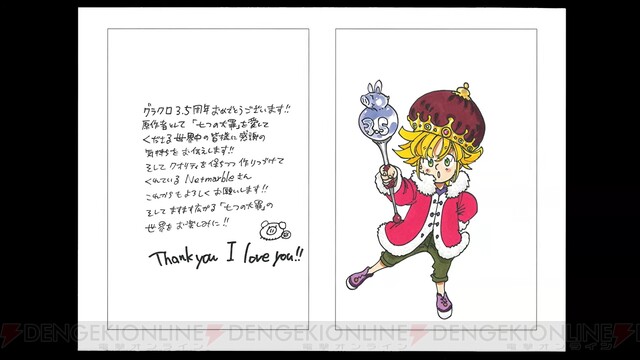 グラクロ3.5周年おめでとうございます!!
原作者として「七つの大罪」を愛して
くださる世界中の皆様に感謝の
気持ちをお伝えします!!
そしてクオリティを保ちつつ作りつづけて
くれているNetmarbleさん
これからもよろしくお願いします!!
そしてますます広がる「七つの大罪」の
世界をお楽しみに!!
Thank you I love you!!
3.5
DENGEKIONLINE DENGEKIONLINE DENGEKIONLINE
電撃オンライン 電撃オンライン 電撃オンライン